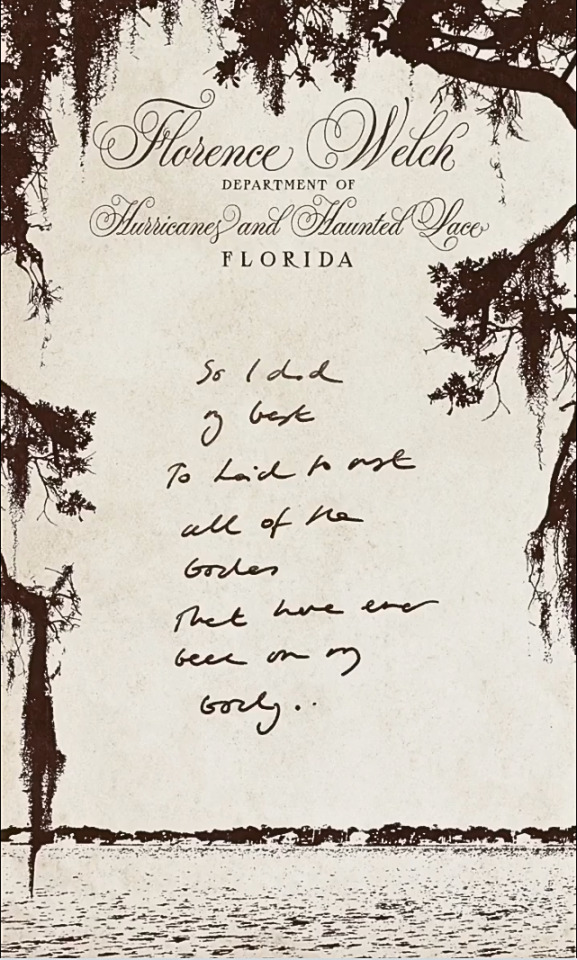 Florence Welch
DEPARTMENT OF
Hurricanes and Haunted Lace
FLORIDA
So I did
my best
To laid to rest
all of the
bodies
That have ever
been on my
body..